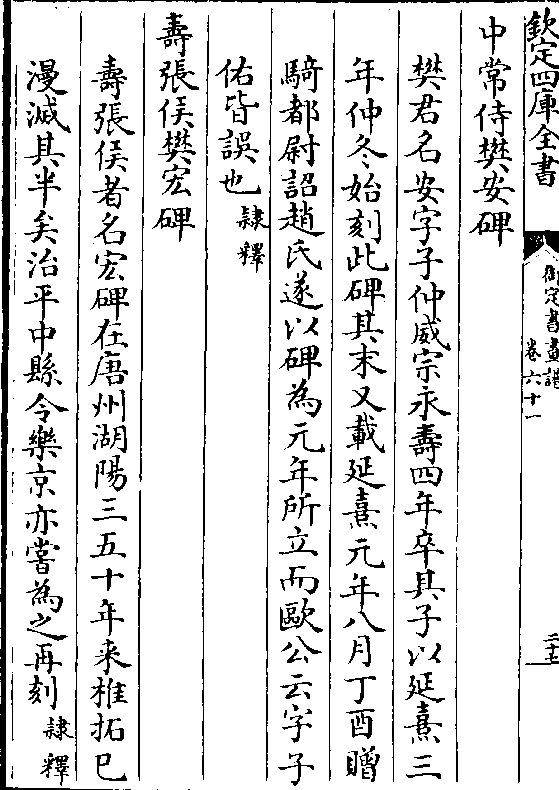 欽定四庫全書
御定書畫譜
卷六十一
二十七
中常侍樊安碑
樊君名安字子仲威宗永壽四年卒其子以延熹三
年仲冬始刻此碑其末又載延熹元年八月丁酉贈
騎都尉詔趙氏遂以碑為元年所立而歐公云字子
佑皆誤也隸釋
壽張侯樊宏碑
壽張侯者名宏碑在唐州湖陽三五十年来椎拓已
漫滅其半矣治平中縣令樂京亦嘗為之再刻隸釋